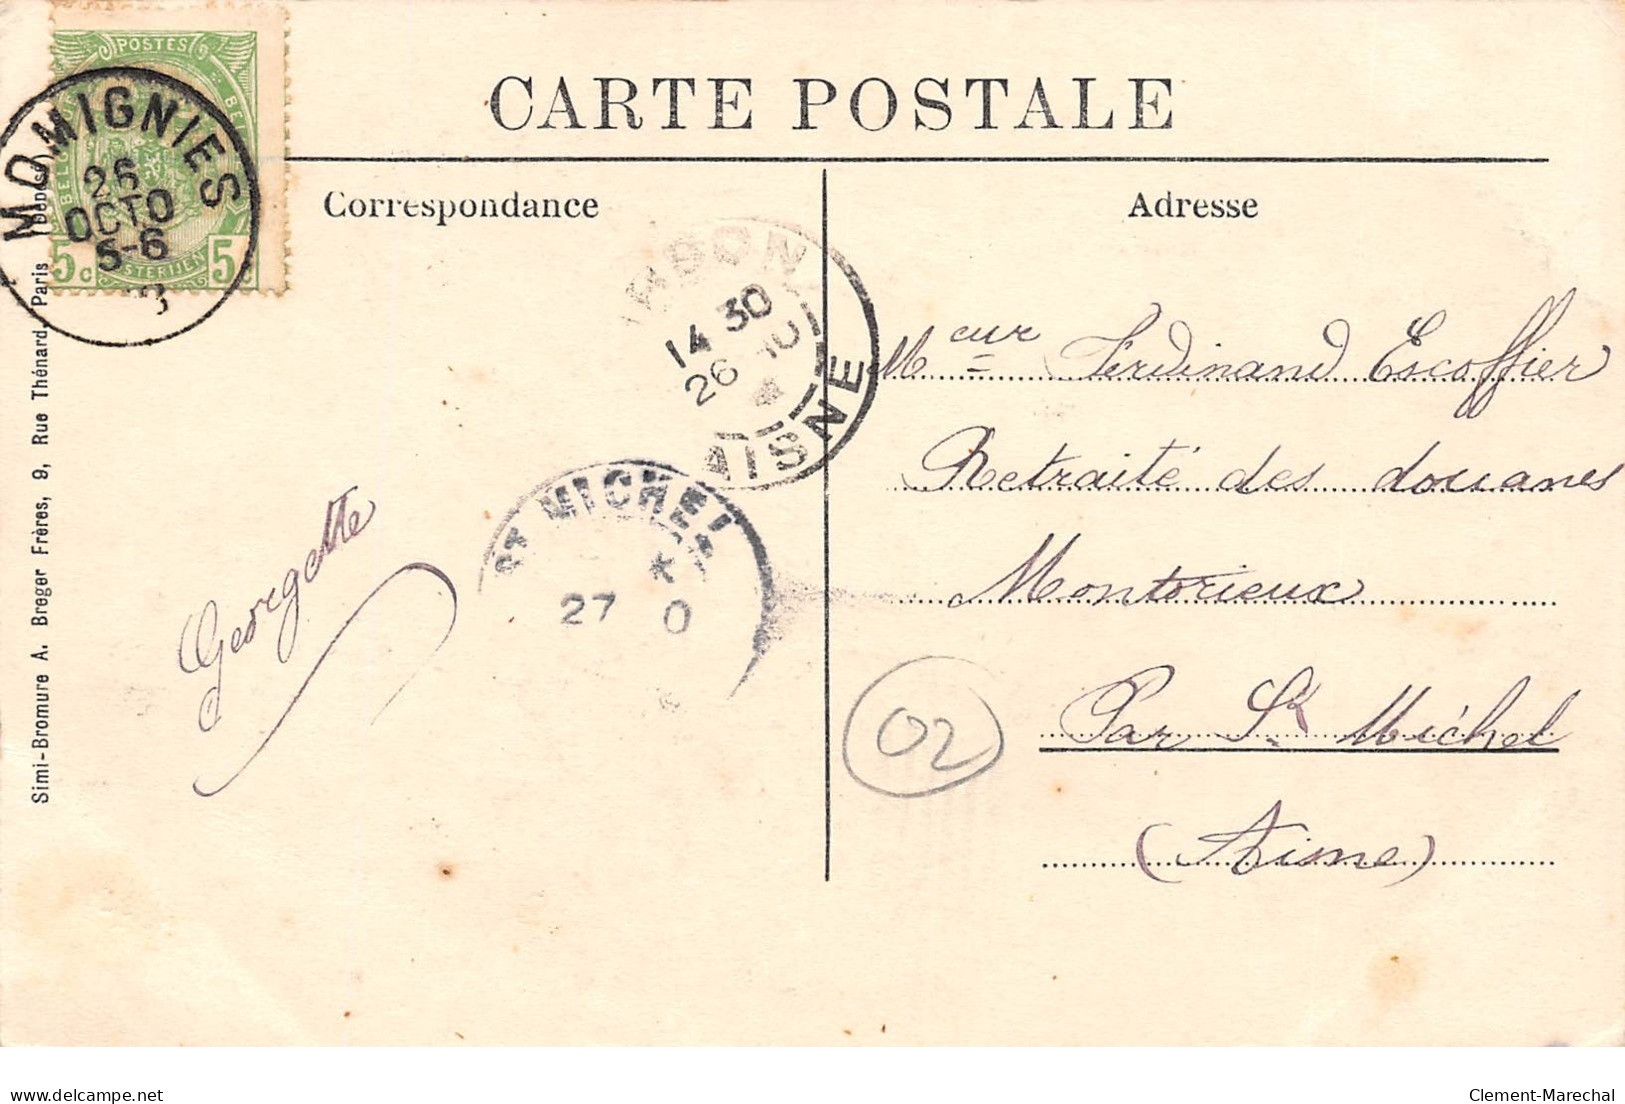 CARTE POSTALE
Correspondance
Adresse
POSTES
5c
5c
MOMIGNIES
26
OCTO
5-6
14 30
26 10
AISNE
St MICHEL
27
0
Mcur Ferdinand Escoffier
Retraité des douanes
Montorieux
Par St Michel
(Aisne)
02
Georgette
Simi-Bromure A. Breger Frères, 9, Rue Thénard, Paris
delcampe.net
Clement-Marechal